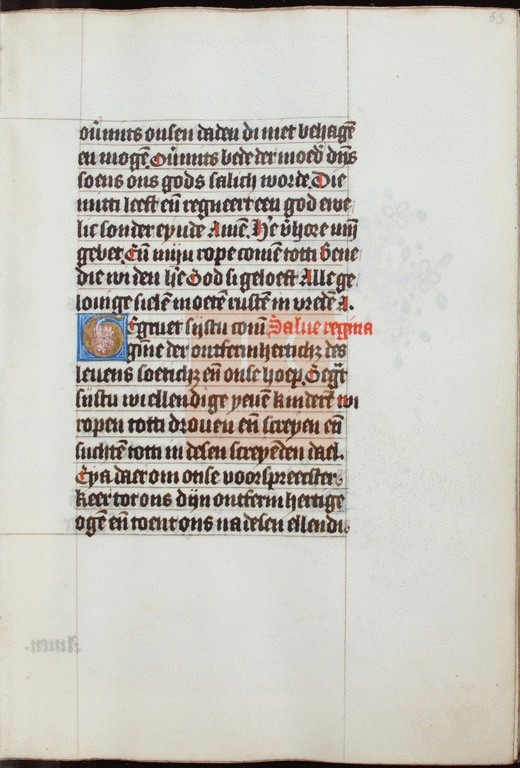 55
ou̅mits onsen daden di niet behage̅
en moge̅. Ou̅mits bede der moed̅ dijns
soens ons gods salich worde. Die
mitti leeft en̅ regneert een god ewe
lic sonder eynde Ame̅. He̅ v̅hore mijn
gebet. En̅ mijn rope come totti Bene
die wi den he̅ God si geloeft Alle ge
louige siele̅ moete̅ ruste̅ in vrede A.
Egruet sijstu coni̅ Salue regina
gi̅ne der ontfermhertich; des
levens soetich; en̅ onse hoep. Gegr̅
sijstu wi ellendige yeve̅ kindere̅ wi
ropen totti droven en̅ screyen en̅
suchte̅ totti in desen screyende̅ dael.
Eya daer om onse voorspreecster
keer tot ons dijn ontferm hertige
oge̅ en̅ toent ons na desen ellendi
Amen.